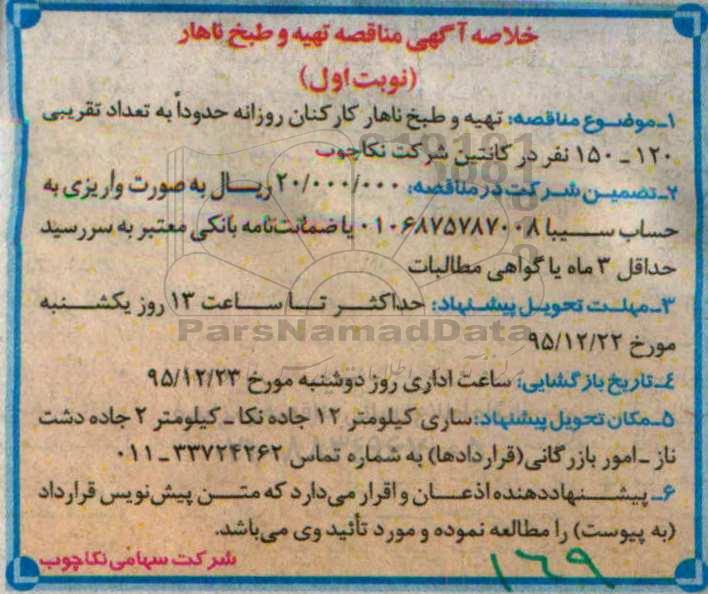 خلاصه آگهی مناقصه تهیه و طبخ ناهار
(نوبت اول)
۱ـ موضوع مناقصه: تهیه و طبخ ناهار کارکنان روزانه حدوداً به تعداد تقریبی
۱۲۰ ـ ۱۵۰ نفر در کانتین شرکت نکاچوب
۲ـ تضمین شرکت در مناقصه: ۲۰/۰۰۰/۰۰۰ ریال به صورت واریزی به
حساب سیبا ۰۱۰۶۸۷۵۷۸۷۰۰۸ یا ضمانتنامه بانکی معتبر به سررسید
حداقل ۳ ماه یا گواهی مطالبات
۳ـ مهلت تحویل پیشنهاد: حداکثر تا ساعت ۱۳ روز یکشنبه
مورخ ۹۵/۱۲/۲۲
ParsNamadData
۴ـ تاریخ بازگشایی: ساعت اداری روز دوشنبه مورخ ۹۵/۱۲/۲۳
۵ـ مکان تحویل پیشنهاد: ساری کیلومتر ۱۲ جاده نکا ـ کیلومتر ۲ جاده دشت
ناز ـ امور بازرگانی (قراردادها) به شماره تماس ۳۳۷۲۴۲۶۲ ـ ۰۱۱
۶ـ پیشنهاددهنده اذعان و اقرار می‌دارد که متن پیش‌نویس قرارداد
(به پیوست) را مطالعه نموده و مورد تأئید وی می‌باشد.
شرکت سهامی نکاچوب
۱۶۹